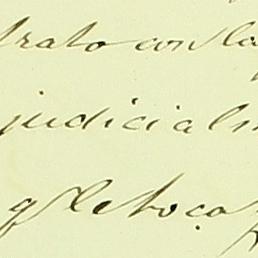 trato con la
judicialm
q.e le toca